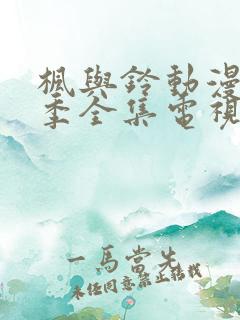 楓與鈴動漫
季全集電視
一馬當先
未經同意禁止轉載